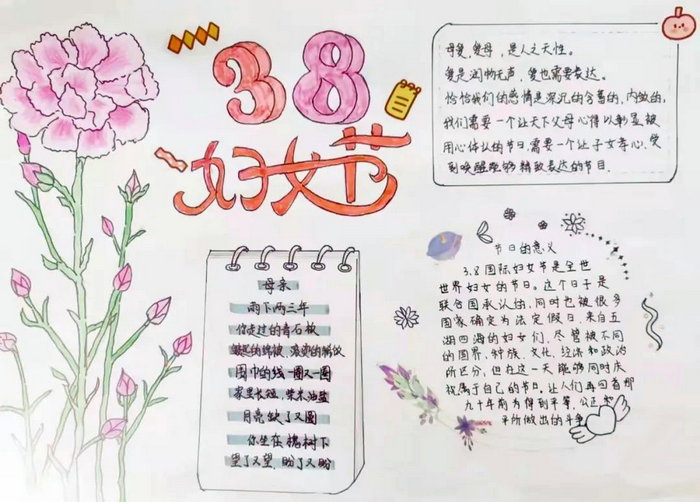 38
妇女节
母爱,爱母,是人之天性。
爱是润物无声,爱也需要表达。
恰恰我们的感情是深沉的含蓄的,内敛的,
我们需要一个让天下父母心得以彰显被
用心体认的节日,需要一个让子女孝心,受
到唤醒能够精致表达的节目.
母亲
雨下两三年
你走过的青石板
围巾的线一圈又一圈
家里长短,柴米油盐
月亮缺了又圆
你坐在槐树下
望了又望,盼了又盼
节日的意义
3.8国际妇女节是全世
世界妇女的节日。这个日子是
联合国承认的,同时也被很多
国家确定为法定假日,来自五
湖四海的妇女们,尽管被不同
的国界,种族,文化,经济和政治
所区分,但在这一天能够同时庆
祝属于自己的节日,让人们再回首那
九十年前为得到平等,公正和
平所做出的斗争